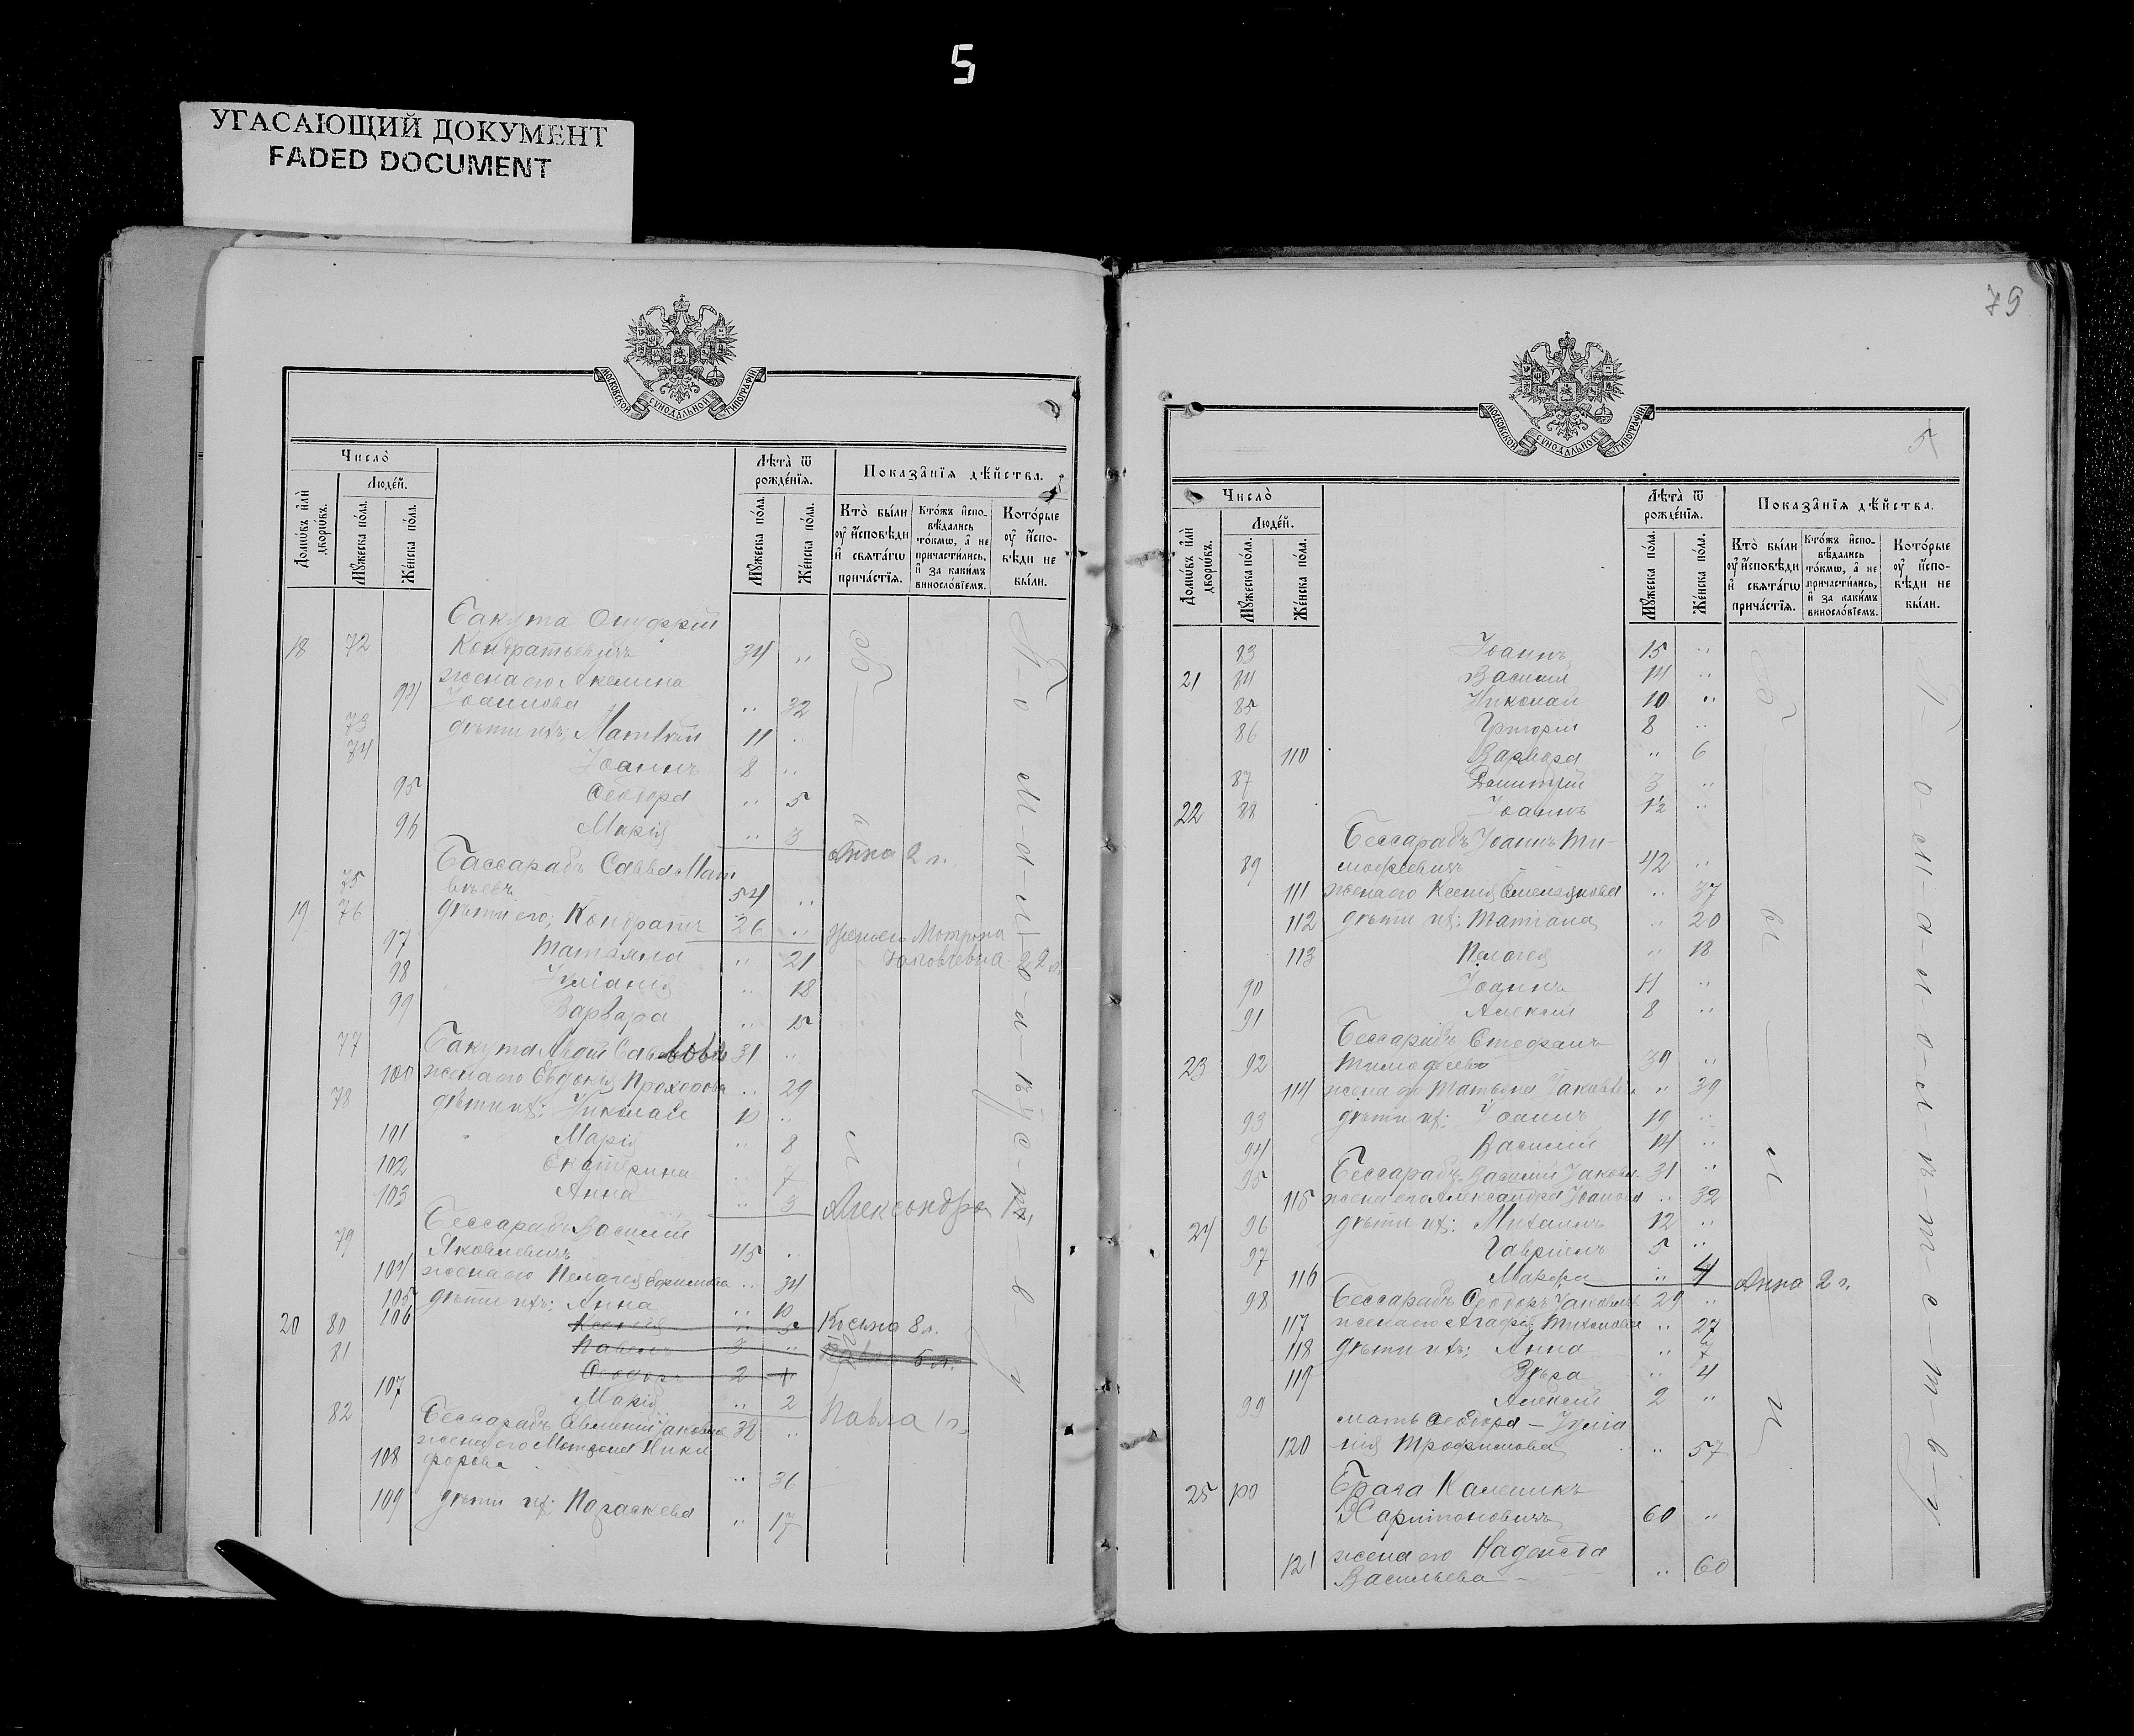 5
УГАСАЮЩИЙ ДОКУМЕНТ
FADED DOCUMENT
МОСКОВСКОЙ СУНОДАЛЬНОЙ ТИПОГРАФІИ
Число̀
Людей.
Лѣта̀ ѿ рожде́нїѧ.
Показа̂нїѧ дѣ́йства.
Домѡ́въ и҆лѝ дворѡ́въ.
Мꙋ́жеска по́ла.
Же́нска по́ла.
Мꙋ́жеска по́ла.
Же́нска по́ла.
Кто̀ бы́ли оу҆ и҆спо́вѣди и҆ свѧта́гѡ прича́стїѧ.
Кто́жъ и҆сповѣ́дались то́кмѡ, а҆ не причасти́лись, и҆ за каки́мъ винословїемъ.
Кото́рые оу҆ и҆спо́вѣди не бы́ли.
Бакута Онуфрій
18 72 Кондратьевичъ 34 "
жена его Акелина
94 Іоаннова " 32
73 дѣти ихъ, Матвѣй 11 "
74 Іоаннъ 8 "
95 Ѳеодора " 5
96 Марія " 3
Анна 2 г.
Бассарабъ Савва Мат
75 вѣевъ 54 "
19 76 дѣти его; Кондратъ 26 "
жена его Мотрона
Яковлевна 22 л.
97 Татьяна " 21
98 Іуліанія " 18
99 Варвара " 15
77 Бакута 31 "
100 жена его Евдокія Прохорова " 29
78 дѣти ихъ: Николай 10 "
101 Марія " 8
102 Екатерина " 7
103 Анна " 3
Александра
Бессарабъ Василій
79 Яковлевичъ 45 "
104 жена его Пелагея Ефимова " 34
105 дѣти ихъ: Анна " 10
20 80 106 Ксенія " 5 Косьма 8 л.
81 Павелъ 3 " 5 л.
Ѳеодоръ 2
107 Марія " 2
Павла 1 г.
82 Бессарабъ 32 "
жена его Мотрона Ники
108 форова " 31
109 дѣти ихъ: Параскева " 17
79
МОСКОВСКОЙ СУНОДАЛЬНОЙ ТИПОГРАФІИ
5
Число̀
Людей.
Лѣта̀ ѿ рожде́нїѧ.
Показа̂нїѧ дѣ́йства.
Домѡ́въ и҆лѝ дворѡ́въ.
Мꙋ́жеска по́ла.
Же́нска по́ла.
Мꙋ́жеска по́ла.
Же́нска по́ла.
Кто̀ бы́ли оу҆ и҆спо́вѣди и҆ свѧта́гѡ прича́стїѧ.
Кто́жъ и҆сповѣ́дались то́кмѡ, а҆ не причасти́лись, и҆ за каки́мъ винословїемъ.
Кото́рые оу҆ и҆спо́вѣди не бы́ли.
83 Іоаннъ 15 "
21 84 Василій 14 "
85 Николай 10 "
86 Григорій 8 "
110 Варвара " 6
87 Димитрій 3 "
22 88 Іоаннъ 1½ "
Бессарабъ Іоаннъ Ти-
89 мофіевичъ 42 "
111 жена его Ксенія Емельянова " 37
112 дѣти ихъ: Татіана " 20
113 Пелагея " 18
90 Іоаннъ 11 "
91 Алексій 8 "
Бессарабъ Стефанъ
23 92 Тимофеевъ 39 "
114 жена его Татьяна Іаковлева " 39
93 дѣти ихъ: Іоаннъ 19 "
94 Василій 14 "
95 Бессарабъ Василій Іаковл. 31 "
115 жена его Александра Іоанова " 32
24 96 дѣти ихъ: Михаилъ 12 "
97 Гавріилъ 5 "
116 Макора " 4
Анна 2 г.
98 Бессарабъ Ѳеодоръ Іаковлевъ 29 "
117 жена его Агафія Тихонова " 27
118 дѣти ихъ; Анна " 7
119 Вѣра " 4
99 Алексій 2 "
мать Ѳеодора — Іуліа
120 нія Трофимова " 57
25 100 Брага Калиникъ
Харитоновичъ 60 "
121 жена его Надежда
Васильева " 60